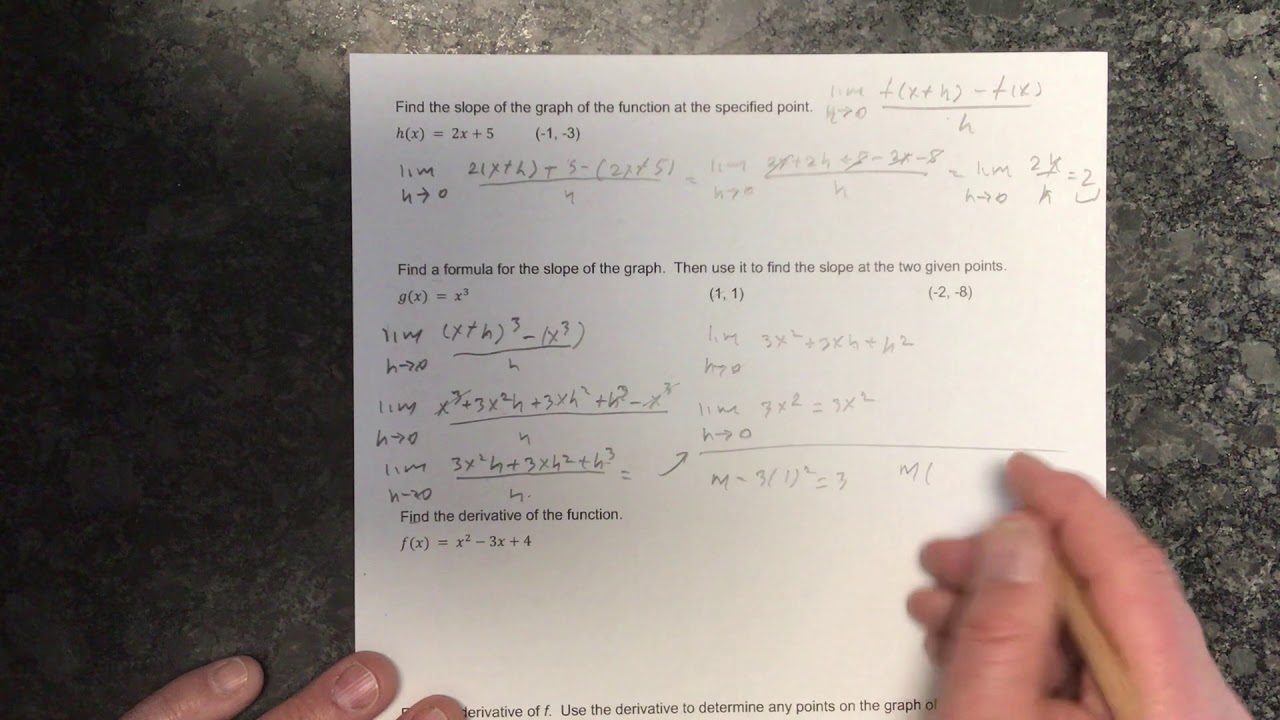 Find the slope of the graph of the function at the specified point. lim h→0 f(x+h) − f(x) / h
h(x) = 2x + 5 (-1, -3)
lim h→0 2(x+h) + 5 − (2x+5) / h = lim h→0 2x + 2h + 5 − 2x − 5 / h = lim h→0 2h / h = 2
Find a formula for the slope of the graph. Then use it to find the slope at the two given points.
g(x) = x³ (1, 1) (-2, -8)
lim h→0 (x+h)³ − (x³) / h
lim h→0 x³ + 3x²h + 3xh² + h³ − x³ / h
lim h→0 3x²h + 3xh² + h³ / h =
lim h→0 3x² + 3xh + h²
lim h→0 3x² = 3x²
m = 3(1)² = 3 m(
Find the derivative of the function.
f(x) = x² − 3x + 4
derivative of f. Use the derivative to determine any points on the graph of